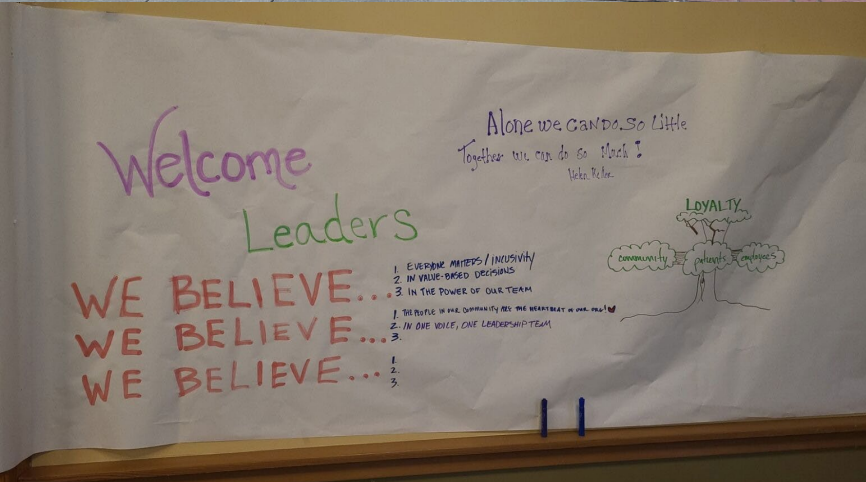 Welcome
Leaders
Alone we CAN DO SO Little
Together we can do so Much!
Helen Keller
LOYALTY
community patients employees
WE BELIEVE...
1. EVERYONE MATTERS/INCLUSIVITY
2. IN VALUE-BASED DECISIONS
3. IN THE POWER OF OUR TEAM
WE BELIEVE...
1. THE PEOPLE IN OUR COMMUNITY ARE THE HEARTBEAT OF OUR ORG!
2. IN ONE VOICE, ONE LEADERSHIP TEAM
3.
WE BELIEVE...
1.
2.
3.